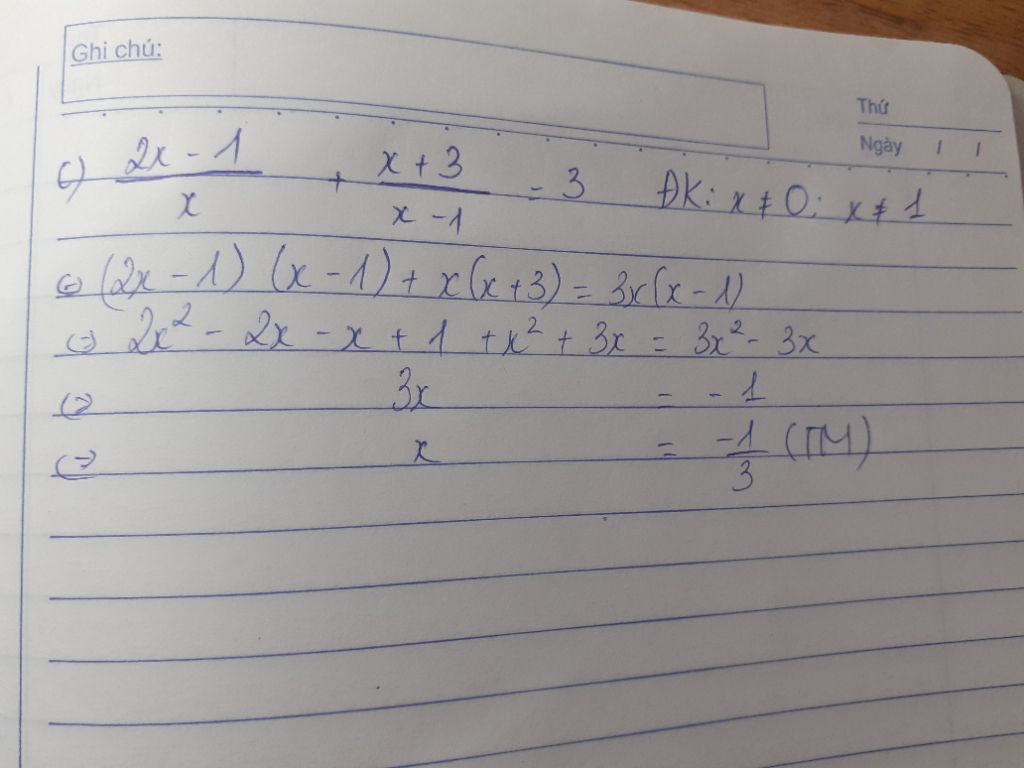 Ghi chú:
Thứ
Ngày / /
c) (2x - 1)/x + (x + 3)/(x - 1) = 3 ĐK: x ≠ 0; x ≠ 1
<=> (2x - 1) (x - 1) + x(x + 3) = 3x(x - 1)
<=> 2x² - 2x - x + 1 + x² + 3x = 3x² - 3x
<=> 3x = - 1
<=> x = -1/3 (TM)